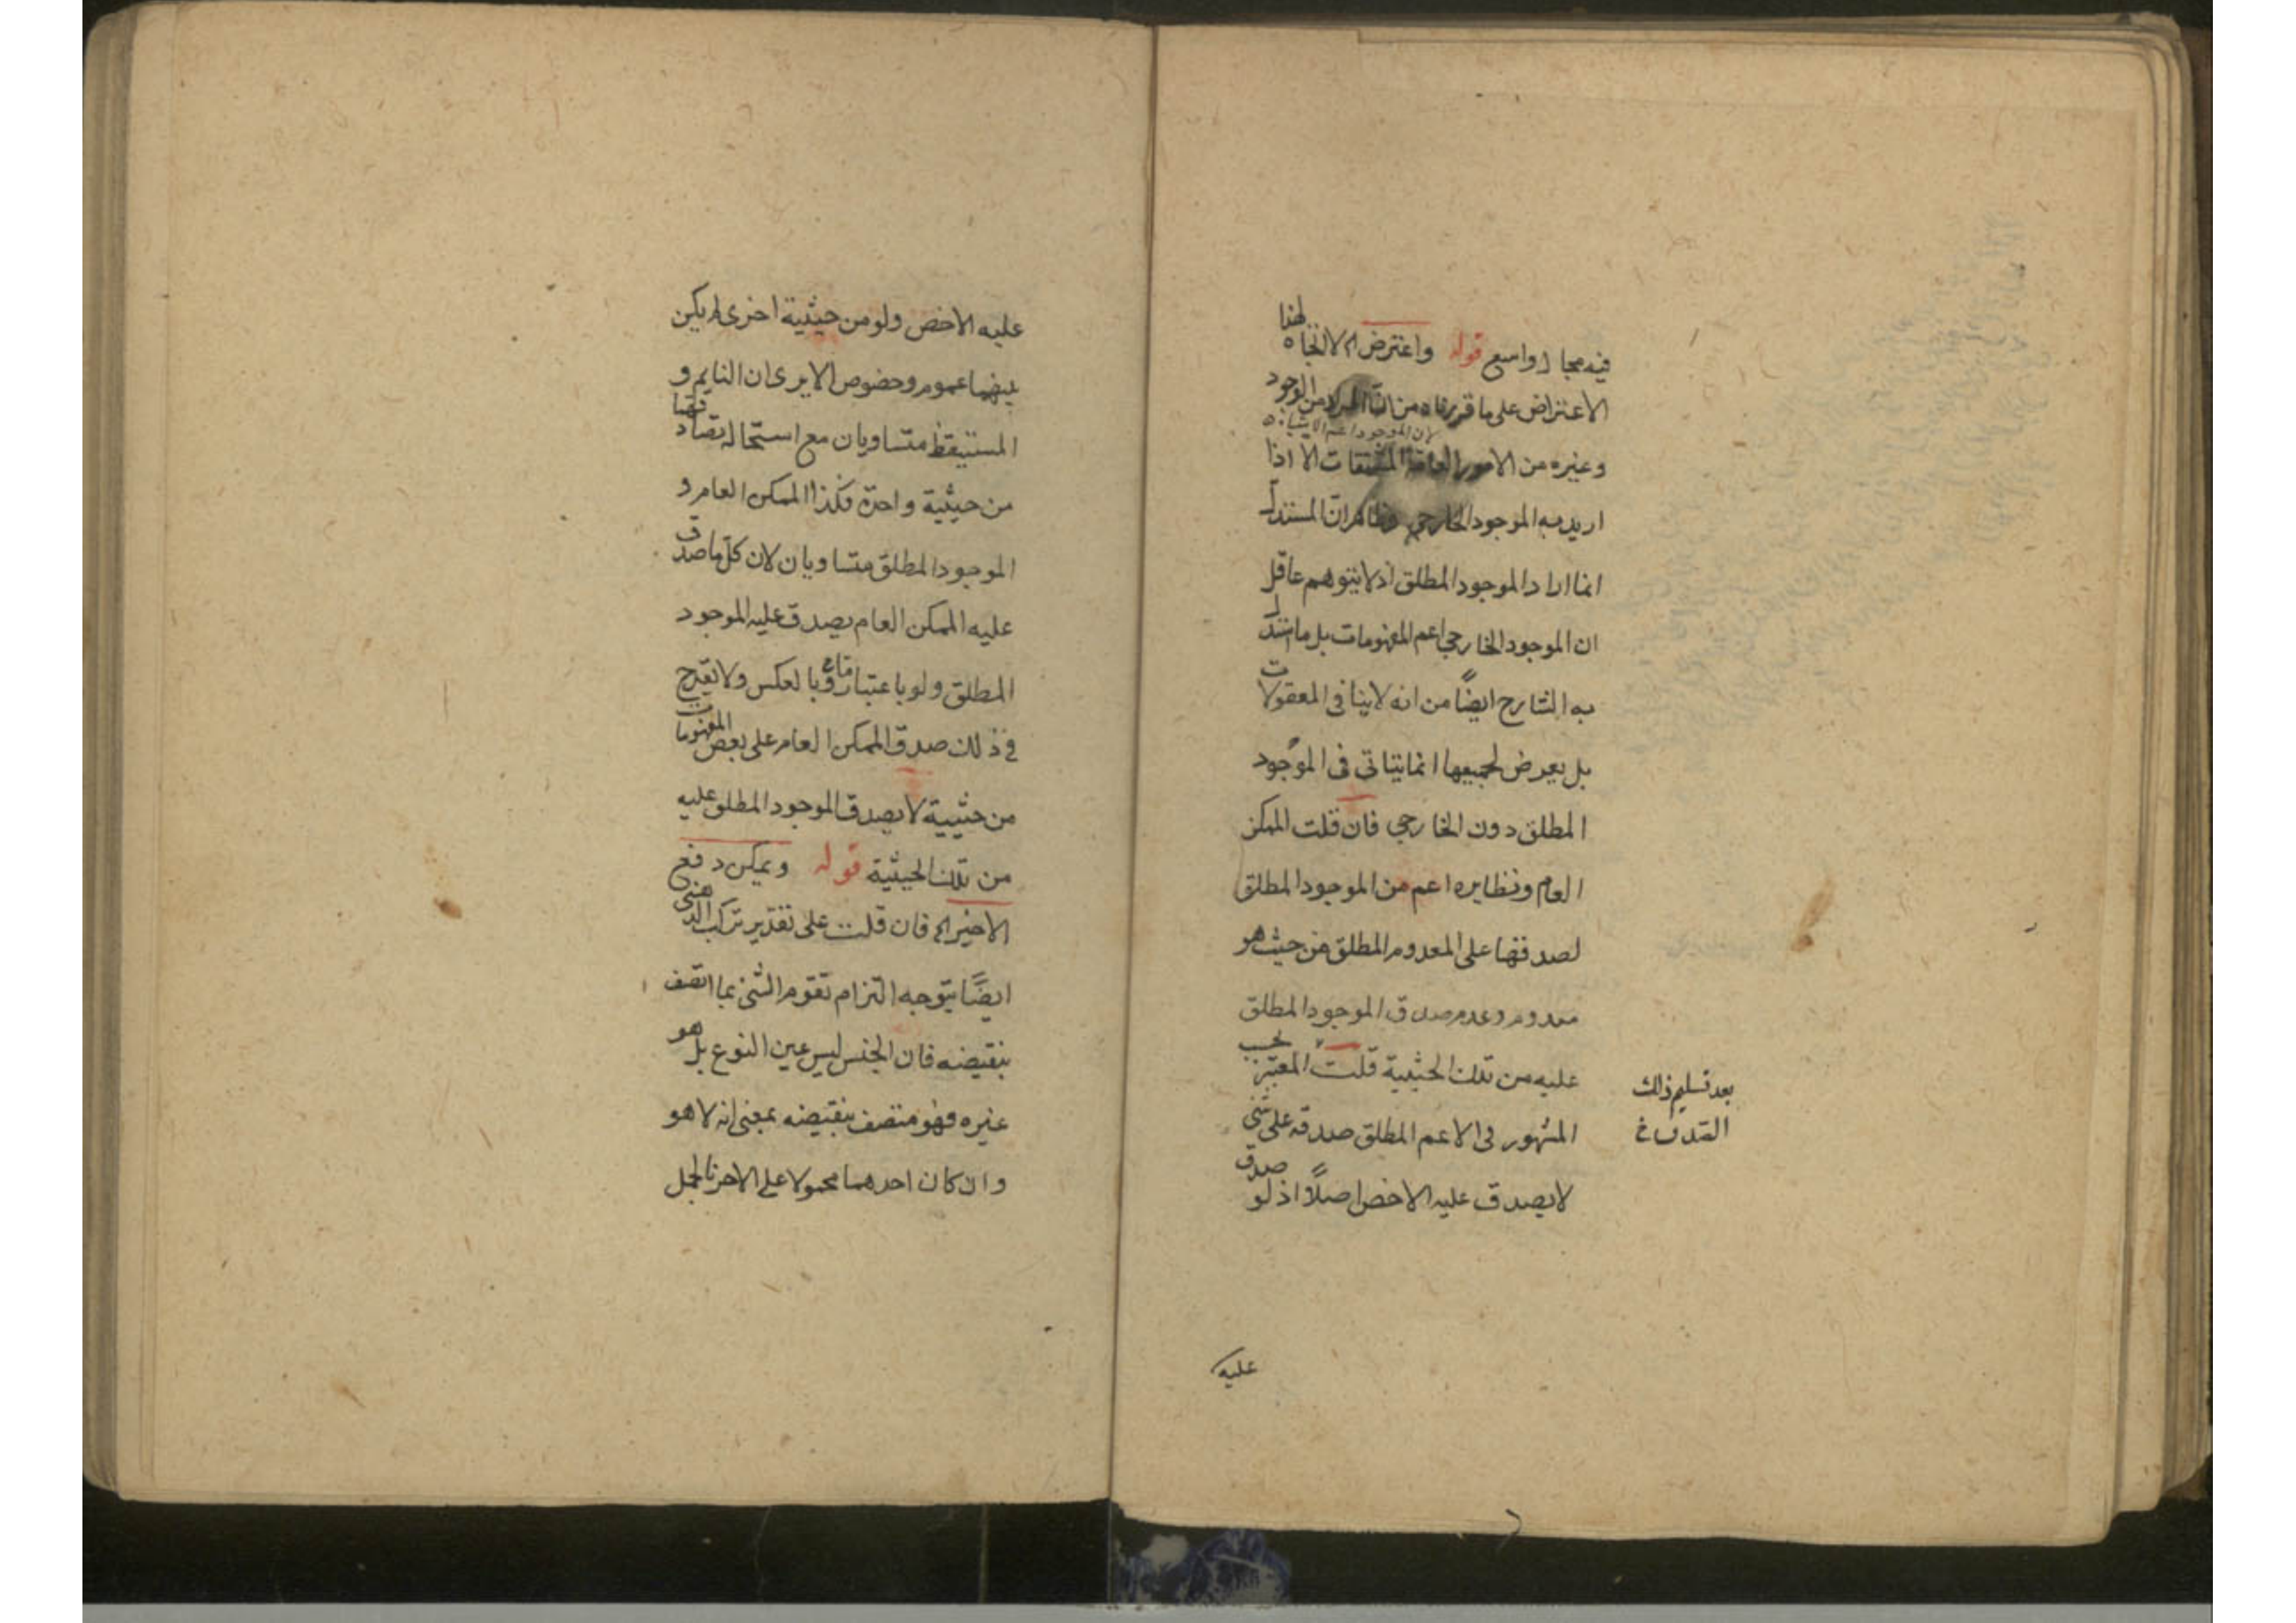 فيه مجال واسع قوله واعترض الخ لا اتجاه لهذا
الاعتراض على ما قررناه من ان المراد من الوجود
لان الموجود اعم الاشياء
وغيره من الامور العامة المشتقات الا اذا
اريد به الموجود الخارجي وظاهر ان المستدل
انما اراد الموجود المطلق اذ لا يتوهم عاقل
ان الموجود الخارجي اعم المفهومات بل ما استدل
به الشارح ايضًا من انه لا ينافي المعقولات
بل يعرض لجميعها انما يتاتى فى الموجود
المطلق دون الخارجي فان قلت الممكن
العام ونظايره اعم من الموجود المطلق
لصدقها على المعدوم المطلق من حيث هو
معدوم وعدم صدق الموجود المطلق
عليه من تلك الحيثية قلت المعتبر بحسب
المشهور فى الاعم المطلق صدقه على شئ
لا يصدق عليه الاخص اصلاً اذ لو صدق
بعد تسليم ذلك
الصدق
عليه
عليه الاخص ولو من حيثية اخرى لم يكن
بينهما عموم وخصوص الا يرى ان النايم و
المستيقظ متساويان مع استحالة تصادقهما
من حيثية واحدة فكذا الممكن العام و
الموجود المطلق متساويان لان كل ما صدق
عليه الممكن العام يصدق عليه الموجود
المطلق ولو باعتبار ما وبالعكس ولا يقدح
في ذلك صدق الممكن العام على بعض المفهومات
من حيثية لا يصدق الموجود المطلق عليه
من تلك الحيثية قوله ويمكن دفع
الاخير الخ فان قلت على تقدير تركب الذهنى
ايضًا يتوجه التزام تقوم الشئ بما اتصف
بنقيضه فان الجنس ليس عين النوع بل هو
غيره فهو متصف بنقيضه بمعنى انه لا هو
وان كان احدهما محمولا على الاخر بالحمل